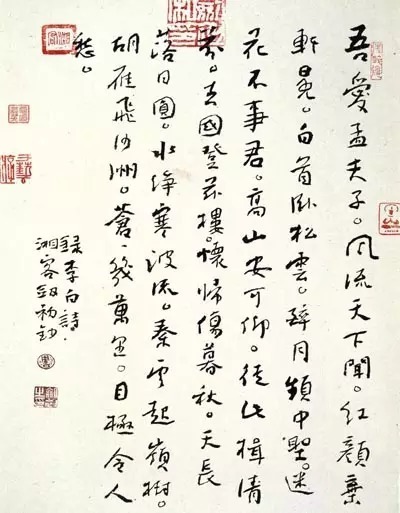 吾愛孟夫子。风流天下聞。红顔棄
軒冕。白首卧松雲。醉月頻中聖。迷
花不事君。高山安可仰。徒此揖清
芬。去國登茲樓。懷歸傷暮秋。天長
落日圓。水浄寒波流。秦雲起嶺樹。
胡雁飛沙洲。蒼、幾萬里。目極令人
愁。
録李白詩.
湘客